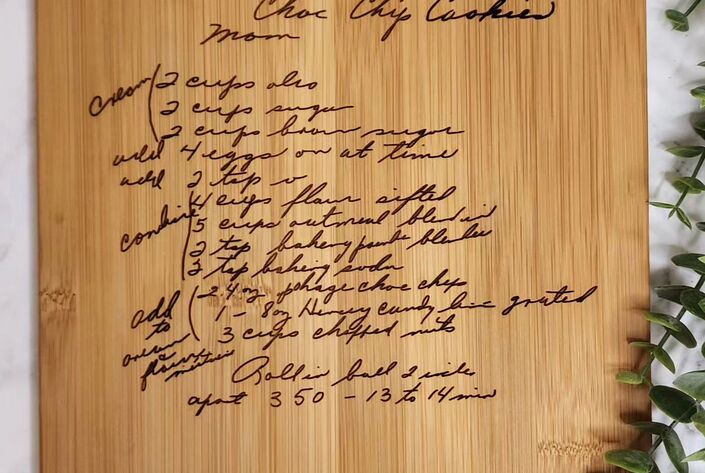 Choc Chip Cookies
Mom
cream 2 cups oleo
2 cups sugar
2 cups brown sugar
add 4 eggs on at time
add 2 tsp v
combine 4 cups flour sifted
5 cups outmeal blended
2 tsp bakery blended
2 tsp baking soda
add to cream & flour mixture
24 oz pkage choc chips
1 - 8 oz Hersey candy grated
3 cups chopped nuts
Roll in ball 2 inches
apart 350 - 13 to 14 min